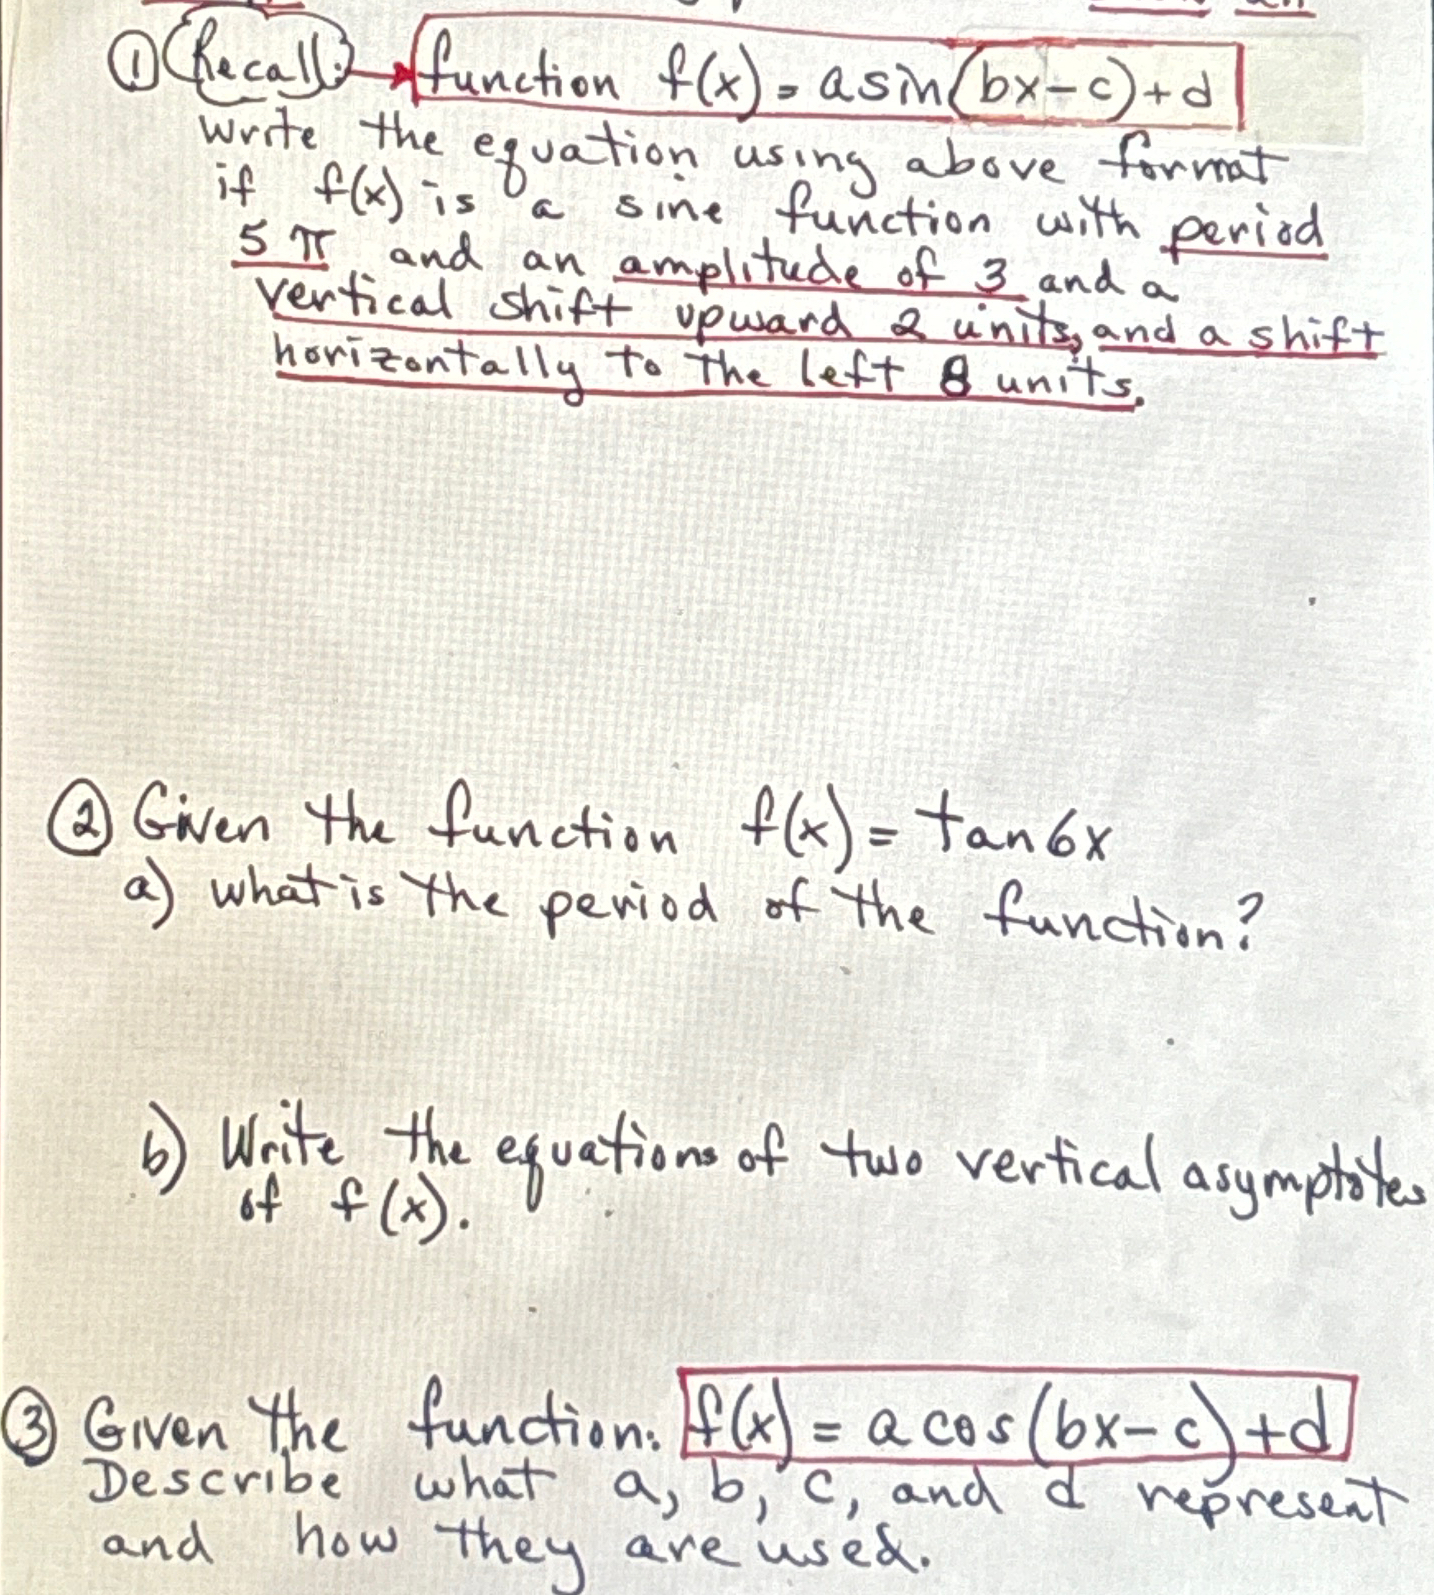 ① Recall: function f(x) = a sin(bx-c)+d
Write the equation using above format
if f(x) is a sine function with period
5π and an amplitude of 3 and a
vertical shift upward 2 units, and a shift
horizontally to the left 8 units.
② Given the function f(x) = tan6x
a) what is the period of the function?
b) Write the equations of two vertical asymptotes
of f(x).
③ Given the function: f(x) = a cos(bx-c)+d
Describe what a, b, c, and d represent
and how they are used.